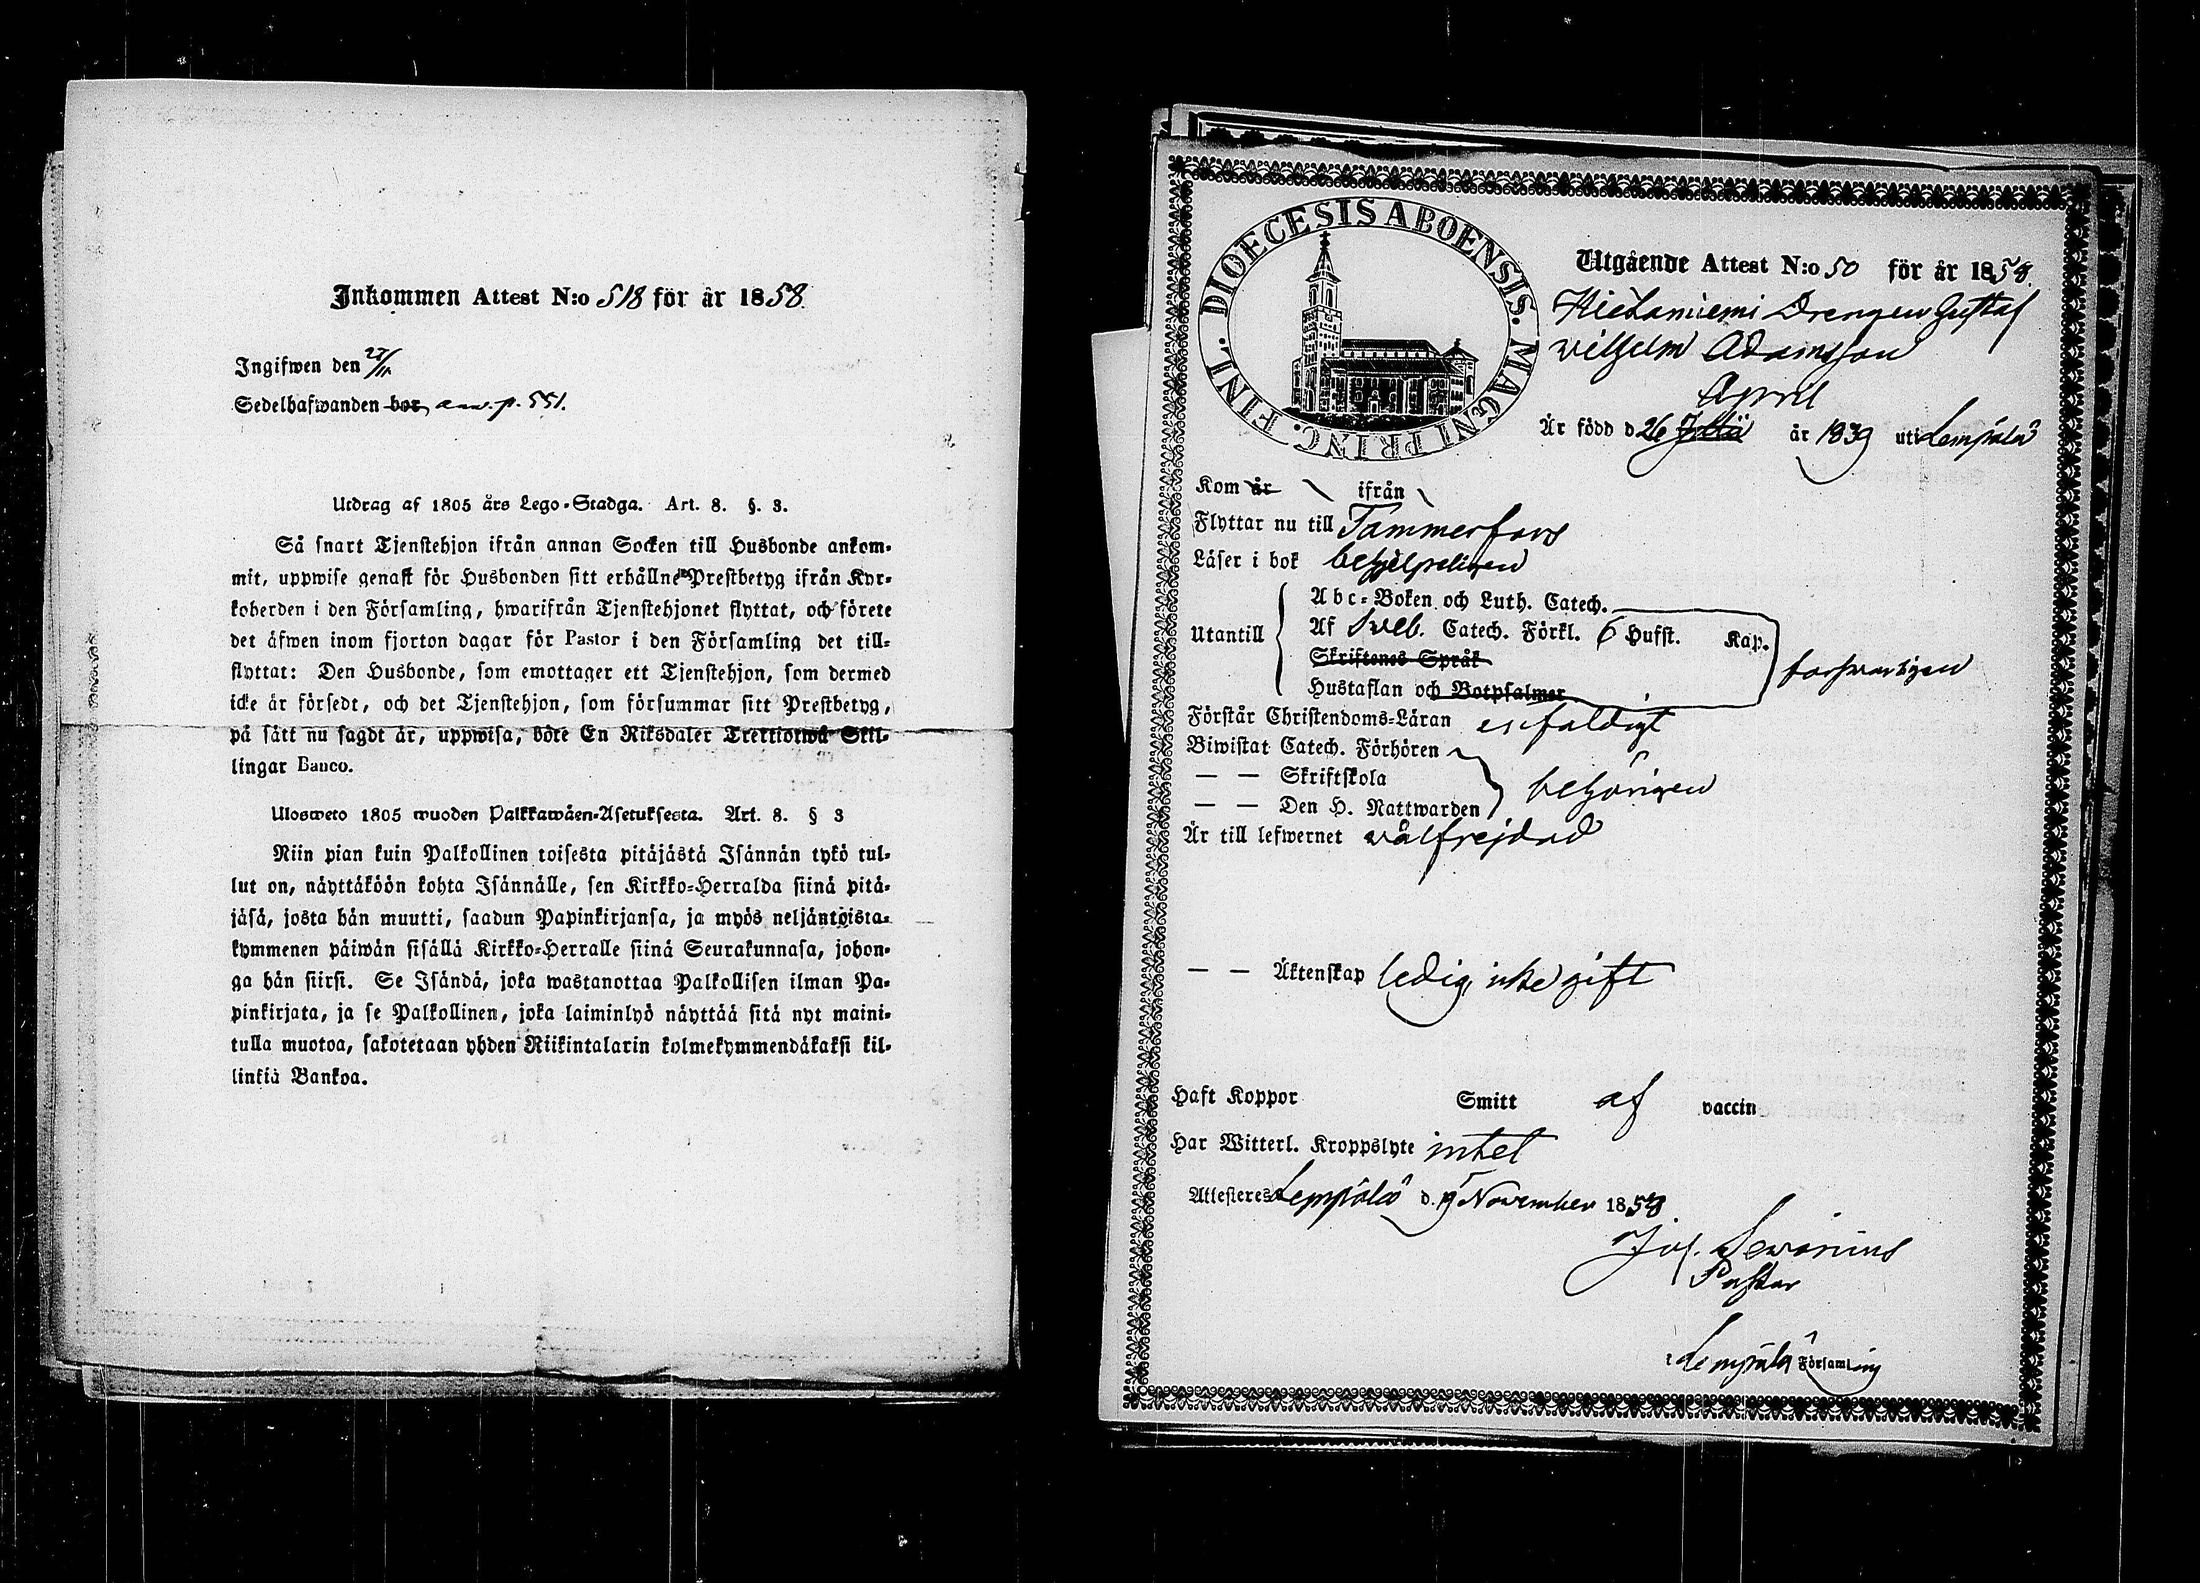 Inkommen Attest N:o 518 för år 1858.
Ingifwen den 27/11
Sedelhafwanden bor anw. p. 551.
Utdrag af 1805 års Lego-Stadga. Art. 8. §. 3.
Så snart Tjenstehjon ifrån annan Socken till Husbonde ankom-
mit, uppwise genast för Husbonden sitt erhållne Prestbetyg ifrån Kyr-
koherden i den Församling, hwarifrån Tjenstehjonet flyttat, och förete
det äfwen inom fjorton dagar för Pastor i den Församling det till-
flyttat: Den Husbonde, som emottager ett Tjenstehjon, som dermed
icke är försedt, och det Tjenstehjon, som försummar sitt Prestbetyg,
på sätt nu sagdt är, uppwisa, böte En Riksdaler Trettiotwå Skil-
lingar Banco.
Ulosweto 1805 wuoden Palkkawäen-Asetuksesta. Art. 8. § 3
Niin pian kuin Palkollinen toisesta pitäjästä Isännän tykö tul-
lut on, näyttäköön kohta Isännälle, sen Kirkko-Herralda siinä pitä-
jäsä, josta hän muutti, saadun Papinkirjansa, ja myös neljäntoista-
kymmenen päiwän sisällä Kirkko-Herralle siinä Seurakunnasa, johon-
ga hän siirsi. Se Isändä, joka wastanottaa Palkollisen ilman Pa-
pinkirjata, ja se Palkollinen, joka laiminlyö näyttää sitä nyt maini-
tulla muotoa, sakotetaan yhden Riikintalarin kolmekymmendäkaksi kil-
linkiä Bankoa.
DIOECESIS ABOENSIS. MAGNI PRINC. FINL.
Utgående Attest N:o 50 för år 1858.
Hietaniemi Drengen Gustaf
Wilhelm Adamsson
April
Är född d. 26 Julii år 1839 uti Lempälä
Kom år ifrån
Flyttar nu till Tammerfors
Läser i bok behjelpeligen
Utantill
Abc-Boken och Luth. Catech.
Af Sveb. Catech. Förkl. 6 Hufst. Kap.
Skriftenes Språk
Hustaflan och Botpsalmer
försvarligen
Förstår Christendoms-Läran enfaldigt
Biwistat Catech. Förhören
— — Skriftskola
— — Den H. Nattwarden
behörigen
Är till lefwernet välfrejdad
— — Äktenskap ledig, icke gift
Haft Koppor Smitt af vaccin
Har Witterl. Kroppslyte intet
Attesteres Lempälä d. 19 November 1858
Jos. Sevonius
Pastor
i Lempälä Församling